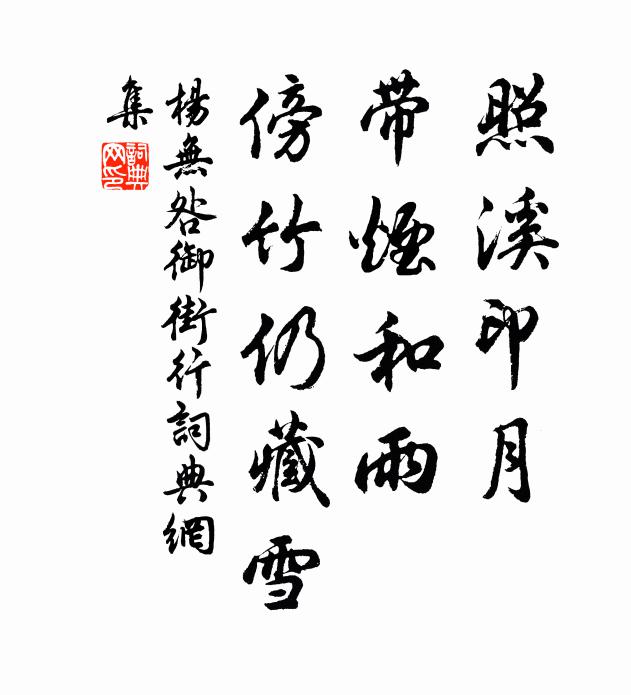 照溪印月
帶煙和雨
傍竹仍藏雪
楊無咎御街行詞典網
集
詞典网印